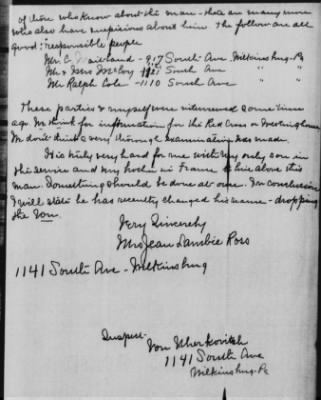 of those who know about the man - there are many more
who also have suspicions about him. The follow are all
good & responsible people
Mr. E. - 917 South Ave Wilkinsburg - Pa
Mr & Mrs McCoy - 1121 South Ave " "
Mr Ralph Cole - 1110 South Ave " "
These parties & myself were interviewed some time
ago for information for the Red Cross or Westinghouse
don't think a very thorough examination was made.
His truly very hard for me with my only son in
the service and my brother in France to live above this
man. Something should be done at once. In conclusion
I will state he has recently changed his name - dropping
the Von.
Very Sincerely
Mrs Jean Lambie Ross
1141 South Ave - Wilkinsburg
Suspect -
Von Uherkovitch
1141 South Ave
Wilkinsburg - Pa